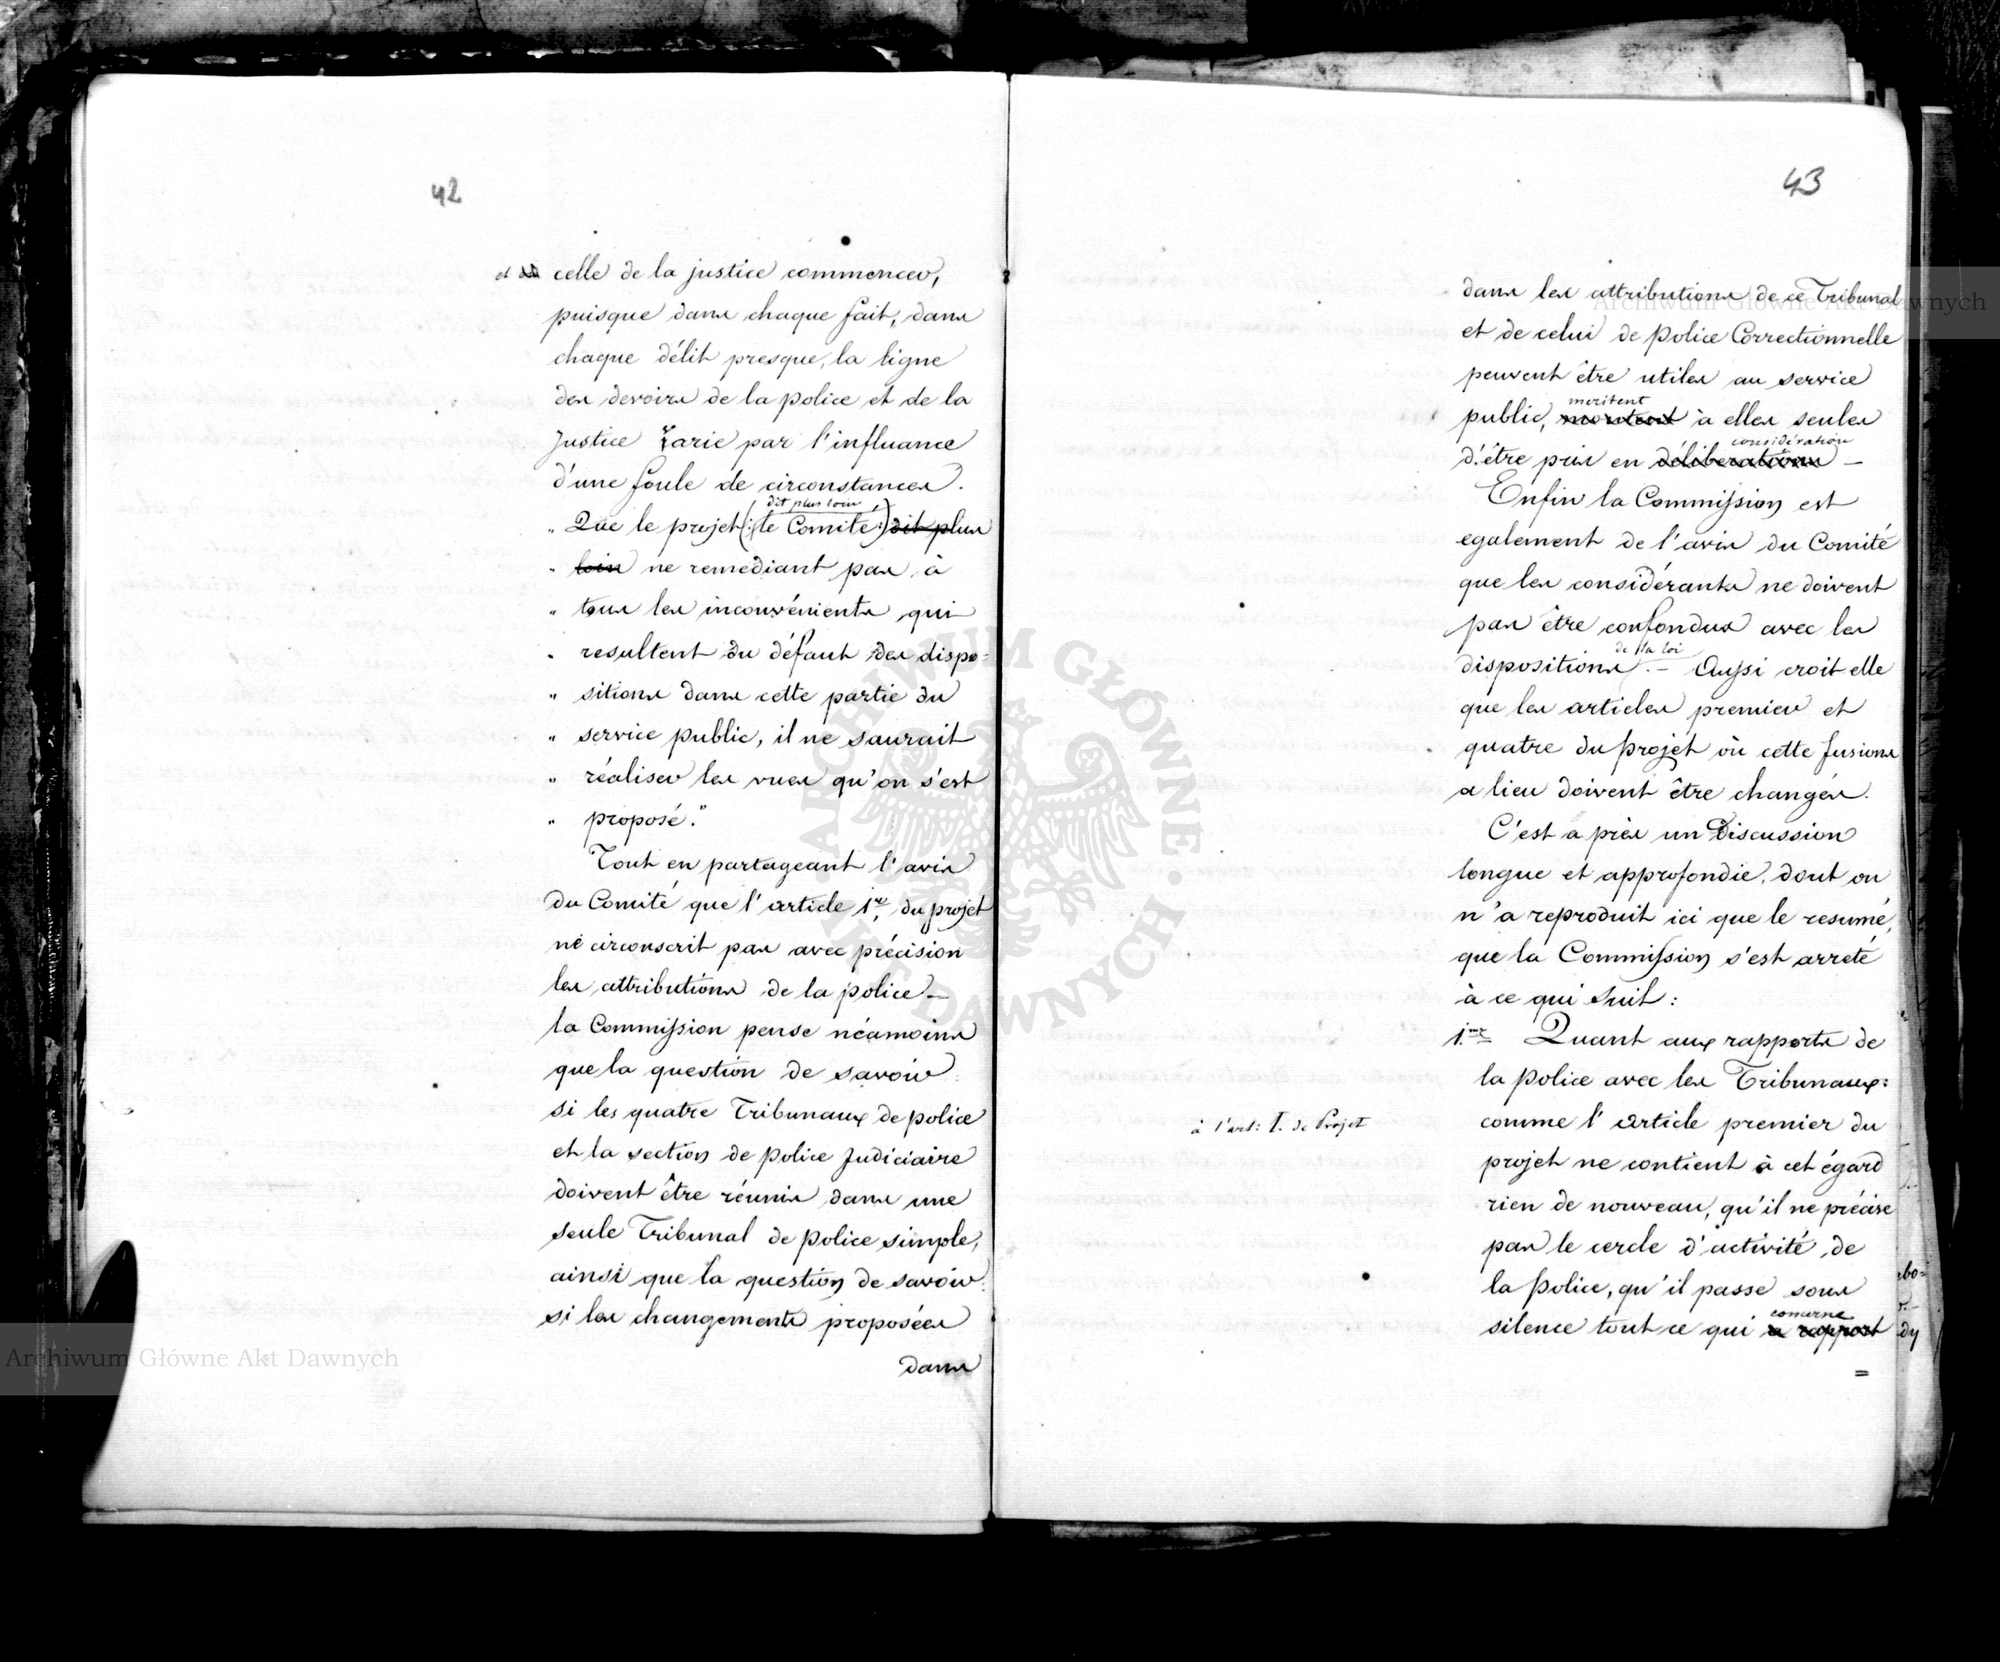 42
et celle de la justice commencer,
puisque dans chaque fait, dans
chaque délit presque, la ligne
des devoirs de la police et de la
Justice varie par l'influance
d'une foule de circonstances.
dit plus loin
„ Que le projet (: le Comité :) dit plus
„ loin ne remediant pas à
„ tous les inconvénients qui
„ resultent du défaut des dispo=
„ sitions dans cette partie du
„ service public, il ne saurait
„ réaliser les vues qu'on s'est
„ proposé."
Tout en partageant l'avis
du Comité que l'article 1er du projet
ne circonscrit pas avec précision
les attributions de la police —
la Commission pense néamoins
que la question de savoir:
si les quatre Tribunaux de police
et la section de police Judiciaire
doivent être réunis dans une
seule Tribunal de police simple,
ainsi que la question de savoir:
si les changements proposées
dans
43
dans les attributions de ce Tribunal
et de celui de police Correctionnelle
peuvent être utiles au service
meritent
public, à elles seules
considération
d'être pris en délibérations —
Enfin la Commission est
egalement de l'avis du Comité
que les considérants ne doivent
pas être confondus avec les
de la loi
dispositions. — Aussi croit elle
que les articles premier et
quatre du projet où cette fusions
a lieu doivent être changés.
C'est a près un Discussion
longue et approfondie, dont on
n'a reproduit ici que le resumé,
que la Commission s'est arreté
à ce qui suit:
1.mt Quant aux rapports de
la police avec les Tribunaux:
à l'art: I. de Projet
comme l'article premier du
projet ne contient à cet égard
rien de nouveau, qu'il ne précise
pas le cercle d'activité de
la police, qu'il passe sous
concerne
silence tout ce qui a rapport
=
Archiwum Główne Akt Dawnych
Archiwum Główne Akt Dawnych
ARCHIWUM GŁÓWNE AKT DAWNYCH